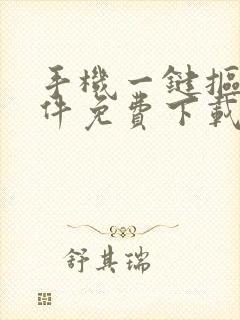 手機一鍵摳
件免費下載
舒其瑞